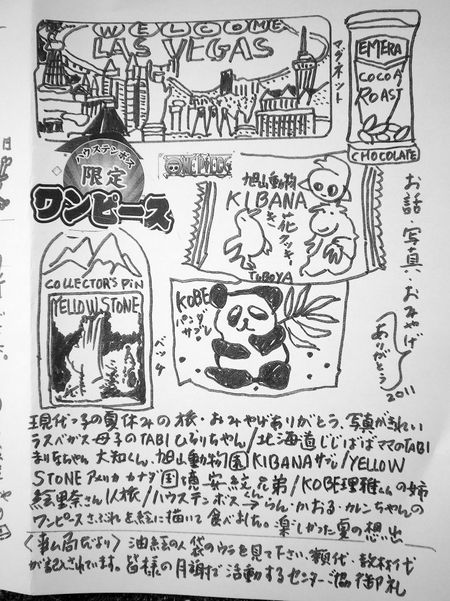 WELCOME
LAS VEGAS
マグネット
EMERA
COCOA
ROAST
CHOCOLATE
ハウステンボス
限定
ワンピース
ONE PIECE
旭山動物
KIBANA
花クッキー
TUBOYA
お話・写真・おみやげ
ありがとう
2011
COLLECTOR'S PIN
YELLOW STONE
バッヂ
KOBE
パンダ
サブレ
現代っ子の夏休みの旅・おみやげありがとう、写真がきれい
ラスベガス母子のTABIひろりちゃん/北海道じじばばママのTABI
まりなちゃん 大知くん、旭山動物園KIBANAサブレ/YELLOW
STONE アメリカ カナダ国 兄弟/KOBE理雅くんの姉
絵里奈さん1人旅/ハウステンボスくん らん・かおる・カレンちゃんの
ワンピースさぶれを絵に描いて食べました。楽しかった夏の想い出
〈事ム局だより〉 油絵の人袋のウラを見て下さい、額代・教材代
が記入されています。皆様の月謝で活動するセンターご協力御礼